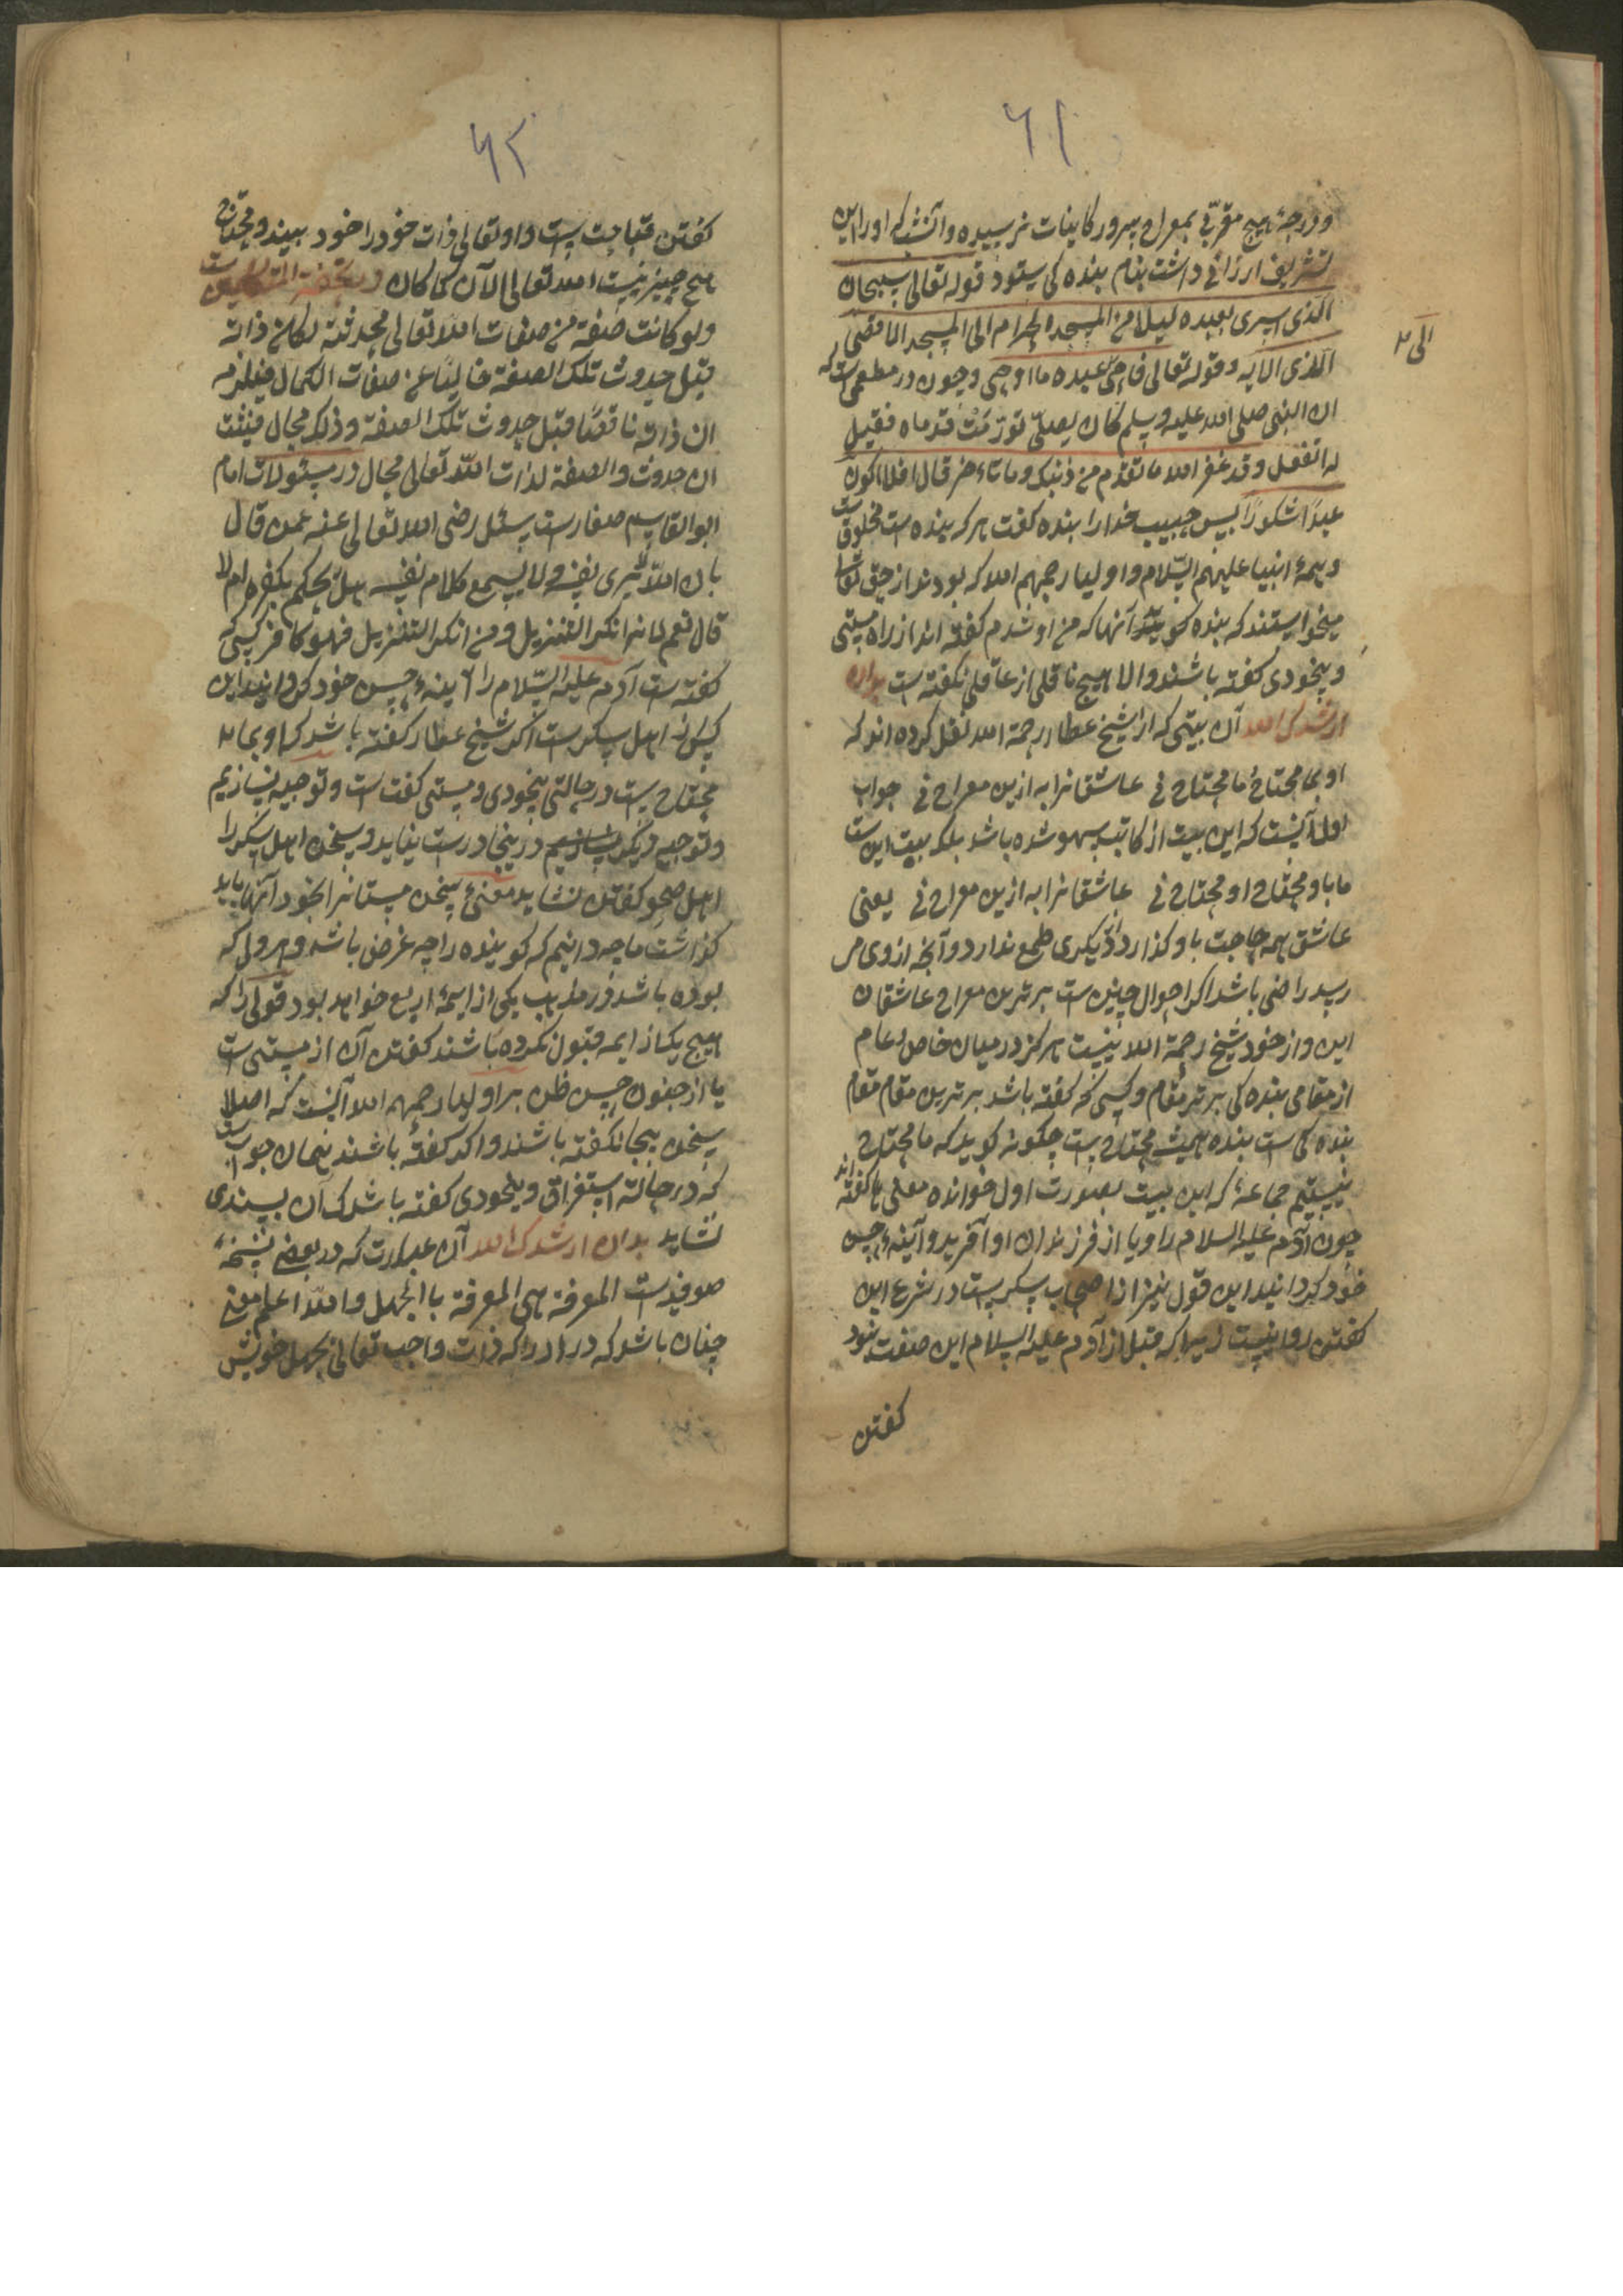 ٦١
ودرجهٔ هیچ مقربی بمعراج سرور کاینات نرسیده وآنشب که اورا این
تشریف ارزانی داشت بنام بنده کی ستود قوله تعالی سبحان
الذی اسری بعبده لیلا من المسجد الحرام الی المسجد الاقصی
الذی الایه وقوله تعالی فاوحی عبده ما اوحی وچون در است که
ان النبی صلی الله علیه وسلم کان یصلی تورمت قدماه فقیل
له اتفعل وقد غفر الله ما تقدم من ذنبک وما تاخر قال افلا اکون
عبدًا شکورًا پس حبیب خدا را بنده گفت هر که بنده است مخلوق است
وهمهٔ انبیا علیهم السلام واولیا رحمهم الله که بودند از حق تعالی
میخواستند که بنده گوید آنها که من او شدم گفته اند از راه مستی
وبیخودی گفته باشند والا هیچ ناقلی از عاقلی نکفته است بدان
ارشدک الله آن بیتی که از شیخ عطار رحمة الله نقل کرده اند که
او بما محتاج ما محتاج نی عاشقانرا به ازین معراج نی جواب
اول آنست که این بیت از کاتب سهو شده باشد بلکه بیت این است
ما باو محتاج او محتاج نی عاشقانرا به ازین معراج نی یعنی
عاشق همه حاجت باو گذارد از دیگری طمع ندارد وآنچه از وی می
رسد راضی باشد اگر احوال چنین است برترین معراج عاشقان
این واز خود شیخ رحمة الله نیست هرگز در میان خاص وعام
از مقامی بنده کی برتر مقام وکسی که گفته باشد برترین مقام مقام
بنده کی است بنده همیشه محتاج است چگونه گوید که ما محتاج
نیستیم جماعهٔ که این بیت بصورت اول خوانده معنی ها گفته اند
چون آدم علیه السلام را ویا از فرزندان او آفرید وآینهٔ حسن
خود گردانید این قول نیز از اصحاب سکر است در شرع این
گفتن روا نیست زیرا که قبل از آدم علیه السلام این صفت نبود
گفتن
٦٢
گفتن قباحت است واو تعالی ذات خود را خود بیند ومحتاج
هیچ چیز نیست الله تعالی الآن کما کان
ولو کانت صفة من صفات الله تعالی محدثة لکان ذاته
قبل حدوث تلک الصفة خالیًا عن صفات الکمال فیلزم
ان ذاته ناقصًا قبل حدوث تلک الصفة وذلک محال فیثبت
ان حدوث والصفة لذات الله تعالی محال در سئولات امام
ابو القاسم صفار است سئل رضی الله تعالی عنه عمن قال
بان الله یری نفسه ولا یسمع کلام نفسه هل یحکم بکفره ام لا
قال نعم لانه انکر التنزیل ومن انکر التنزیل فهو کافر کسی که
گفته است آدم علیه السلام را آینهٔ حسن خود گردانید این
کس از اهل سکر است اگر شیخ عطار گفته باشد که او بما
محتاج است در حالتی بیخودی ومستی گفت است وتوجیه نسازیم
وتوجیه دیگر بسازیم درینجا درست نیاید وسخن اهل سکر را
اهل صحو گفتن نشاید معنیٔ سخن مستانرا بخود آنها باید
گذاشت ما چه دانیم که گوینده را چه غرض باشد وهر ولی که
بوده باشد در مذهب یکی از ایمهٔ اربع خواهد بود قولی را که
هیچ یک از ایمه قبول نکرده باشند گفتن آن از مستی است
یا از جنون حسن ظن بر اولیا رحمهم الله آنست که اصلا
سخن بیجا نکفته باشند واگر گفته باشند همان جواب است
که در حالة استغراق وبیخودی گفته باشد که آن بسندی
نشاید بدان ارشدک الله آن عبارت که در بعضی نسخهٔ
صوفیه است المعرفة هی المعرفة با الجهل والله اعلم معنی
چنان باشد که در ادراکه ذات واجب تعالی بجهل خویش